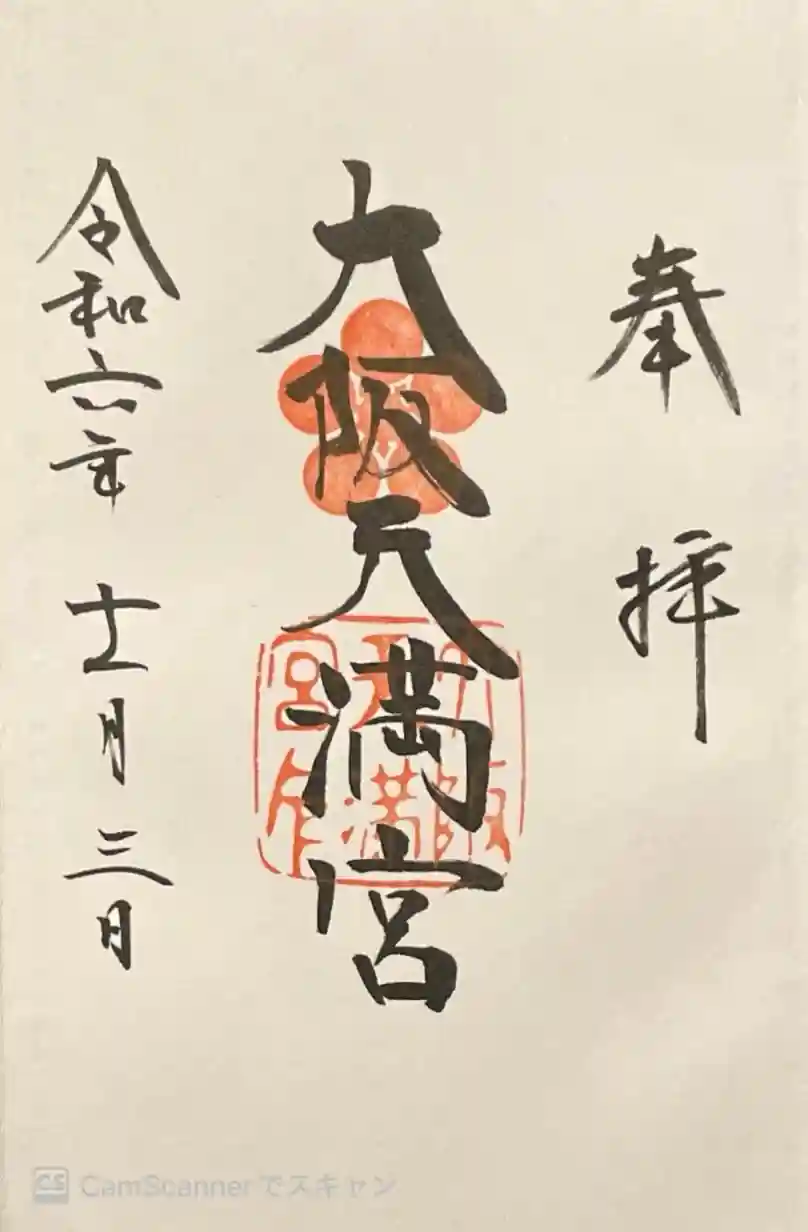 奉拝
大阪天満宮
令和六年 十一月 三日
大阪
天満
宮
CamScannerでスキャン